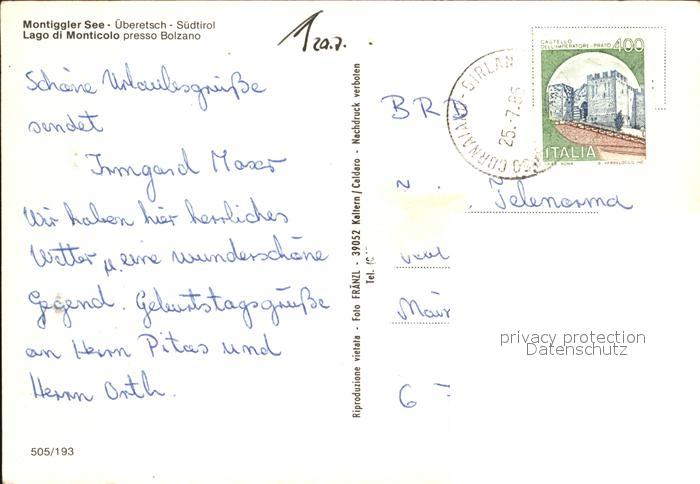 Montiggler See - Überetsch - Südtirol
Lago di Monticolo presso Bolzano
1 20.7.
Schöne Urlaubsgrüße
sendet
Irmgard Moser
Wir haben hier herrliches
Wetter u. eine wunderschöne
Gegend. Geburtstagsgrüße
an Herrn Pitas und
Herrn Orth.
505/193
Riproduzione vietata - Foto FRÄNZL - 39052 Kaltern/Caldaro - Nachdruck verboten
Tel.
CASTELLO
DELL'IMPERATORE - PRATO
400
ITALIA
CORNAIANO - GIRLAN
25.-7.86
BRD
Telenorma
6
privacy protection
Datenschutz